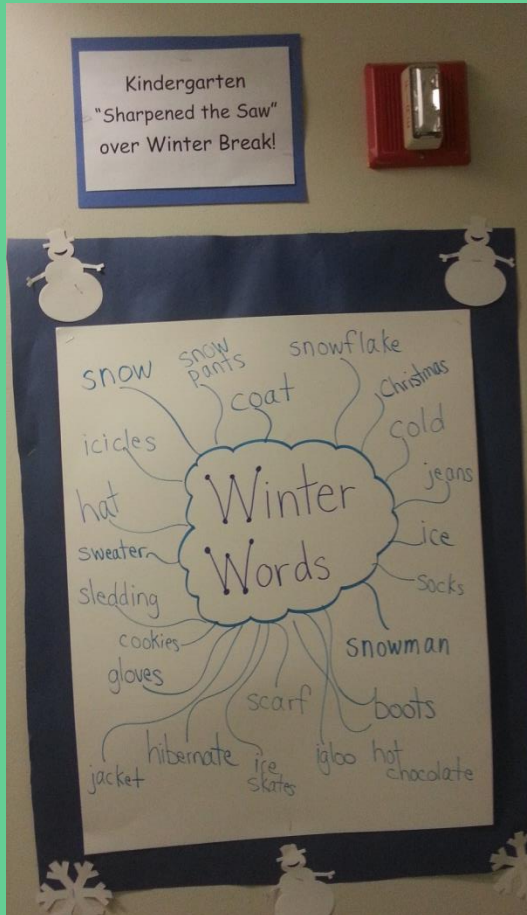 Kindergarten
"Sharpened the Saw"
over Winter Break!
snow
snow
pants
coat
snowflake
Christmas
cold
jeans
ice
socks
snowman
boots
hot
chocolate
igloo
scarf
ice
skates
hibernate
jacket
gloves
cookies
sledding
sweater
hat
icicles
Winter
Words